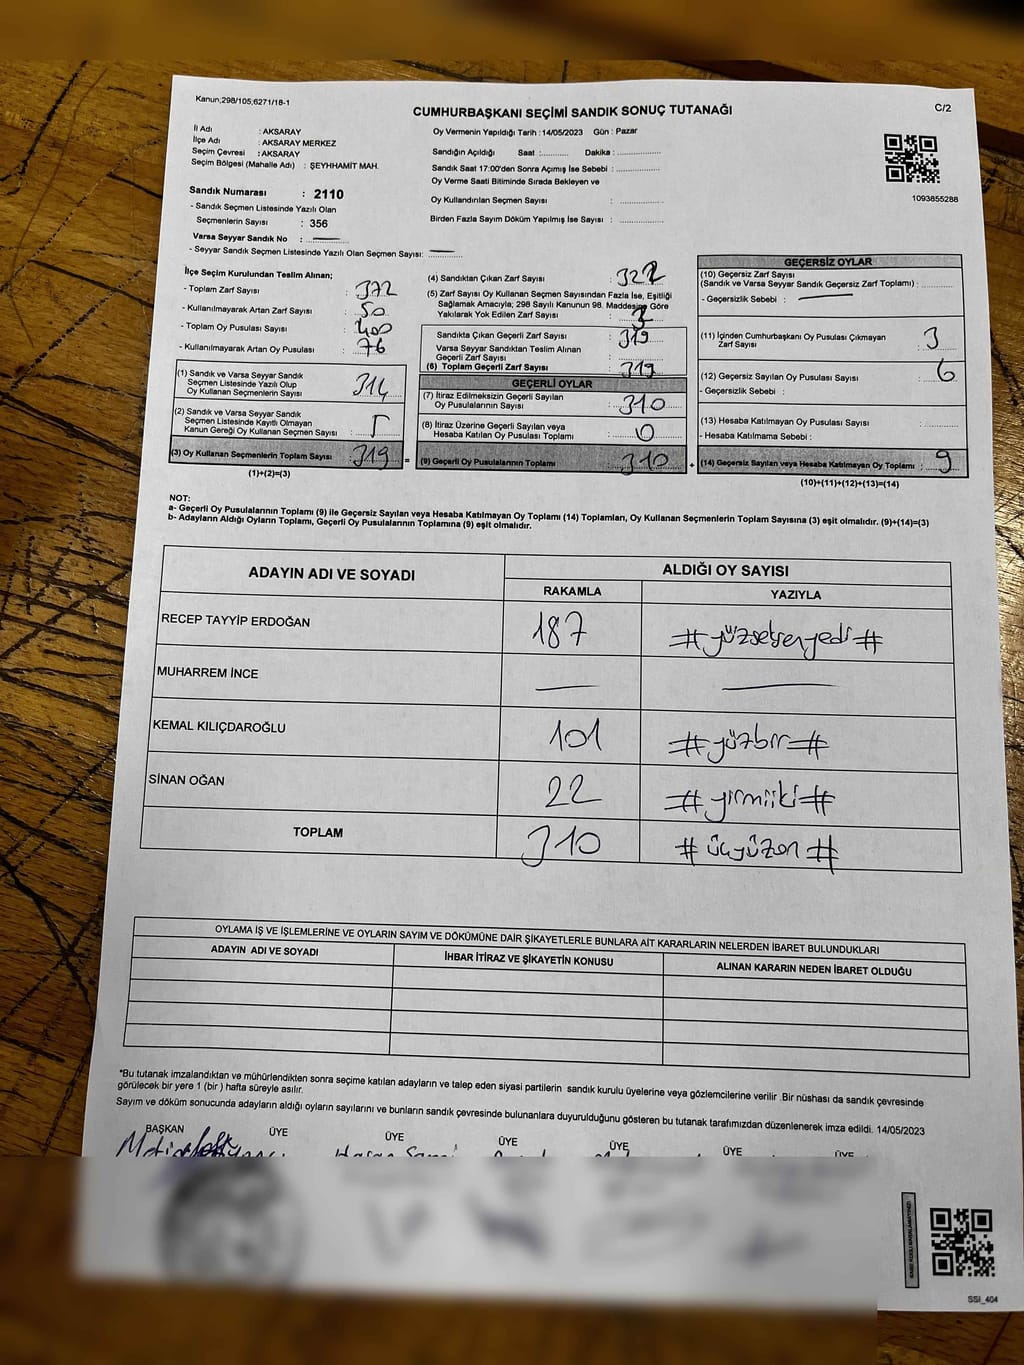 Kanun;298/105;6271/18-1
CUMHURBAŞKANI SEÇİMİ SANDIK SONUÇ TUTANAĞI
C/2
İl Adı : AKSARAY
İlçe Adı : AKSARAY MERKEZ
Seçim Çevresi : AKSARAY
Seçim Bölgesi (Mahalle Adı) : ŞEYHHAMİT MAH.
Sandık Numarası : 2110
- Sandık Seçmen Listesinde Yazılı Olan
Seçmenlerin Sayısı : 356
Varsa Seyyar Sandık No :
- Seyyar Sandık Seçmen Listesinde Yazılı Olan Seçmen Sayısı:
Oy Vermenin Yapıldığı Tarih : 14/05/2023 Gün : Pazar
Sandığın Açıldığı Saat :........... Dakika : ................
Sandık Saat 17:00'den Sonra Açımış İse Sebebi : ................
Oy Verme Saati Bitiminde Sırada Bekleyen ve
Oy Kullandırılan Seçmen Sayısı : ................
Birden Fazla Sayım Döküm Yapılmış İse Sayısı : ................
1093855288
İlçe Seçim Kurulundan Teslim Alınan;
- Toplam Zarf Sayısı : 372
- Kullanılmayarak Artan Zarf Sayısı : 50
- Toplam Oy Pusulası Sayısı : 400
- Kullanılmayarak Artan Oy Pusulası : 76
(1) Sandık ve Varsa Seyyar Sandık
Seçmen Listesinde Yazılı Olup
Oy Kullanan Seçmenlerin Sayısı : 314
(2) Sandık ve Varsa Seyyar Sandık
Seçmen Listesinde Kayıtlı Olmayan
Kanun Gereği Oy Kullanan Seçmen Sayısı : 5
(3) Oy Kullanan Seçmenlerin Toplam Sayısı : 319 =
(1)+(2)=(3)
(4) Sandıktan Çıkan Zarf Sayısı : 322
(5) Zarf Sayısı Oy Kullanan Seçmen Sayısından Fazla İse, Eşitliği
Sağlamak Amacıyla; 298 Sayılı Kanunun 98. Maddesine Göre
Yakılarak Yok Edilen Zarf Sayısı : 3
Sandıkta Çıkan Geçerli Zarf Sayısı : 319
Varsa Seyyar Sandıktan Teslim Alınan
Geçerli Zarf Sayısı :
(6) Toplam Geçerli Zarf Sayısı : 319
GEÇERLİ OYLAR
(7) İtiraz Edilmeksizin Geçerli Sayılan
Oy Pusulalarının Sayısı : 310
(8) İtiraz Üzerine Geçerli Sayılan veya
Hesaba Katılan Oy Pusulası Toplamı : 0
(9) Geçerli Oy Pusulalarının Toplamı : 310 +
GEÇERSİZ OYLAR
(10) Geçersiz Zarf Sayısı
(Sandık ve Varsa Seyyar Sandık Geçersiz Zarf Toplamı) :
- Geçersizlik Sebebi :
(11) İçinden Cumhurbaşkanı Oy Pusulası Çıkmayan
Zarf Sayısı : 3
(12) Geçersiz Sayılan Oy Pusulası Sayısı : 6
- Geçersizlik Sebebi :
(13) Hesaba Katılmayan Oy Pusulası Sayısı :
- Hesaba Katılmama Sebebi :
(14) Geçersiz Sayılan veya Hesaba Katılmayan Oy Toplamı : 9
(10)+(11)+(12)+(13)=(14)
NOT:
a- Geçerli Oy Pusulalarının Toplamı (9) ile Geçersiz Sayılan veya Hesaba Katılmayan Oy Toplamı (14) Toplamları, Oy Kullanan Seçmenlerin Toplam Sayısına (3) eşit olmalıdır. (9)+(14)=(3)
b- Adayların Aldığı Oyların Toplamı, Geçerli Oy Pusulalarının Toplamına (9) eşit olmalıdır.
ADAYIN ADI VE SOYADI ALDIĞI OY SAYISI
RAKAMLA YAZIYLA
RECEP TAYYİP ERDOĞAN 187 #yüzseksenyedi#
MUHARREM İNCE
KEMAL KILIÇDAROĞLU 101 #yüzbir#
SİNAN OĞAN 22 #yirmiiki#
TOPLAM 310 #üçyüzon#
OYLAMA İŞ VE İŞLEMLERİNE VE OYLARIN SAYIM VE DÖKÜMÜNE DAİR ŞİKAYETLERLE BUNLARA AİT KARARLARIN NELERDEN İBARET BULUNDUKLARI
ADAYIN ADI VE SOYADI İHBAR İTİRAZ VE ŞİKAYETİN KONUSU ALINAN KARARIN NEDEN İBARET OLDUĞU
*Bu tutanak imzalandıktan ve mühürlendikten sonra seçime katılan adayların ve talep eden siyasi partilerin sandık kurulu üyelerine veya gözlemcilerine verilir .Bir nüshası da sandık çevresinde
görülecek bir yere 1 (bir ) hafta süreyle asılır.
Sayım ve döküm sonucunda adayların aldığı oyların sayılarını ve bunların sandık çevresinde bulunanlara duyurulduğunu gösteren bu tutanak tarafımızdan düzenlenerek imza edildi. 14/05/2023
BAŞKAN ÜYE ÜYE ÜYE ÜYE ÜYE ÜYE
SSI_404